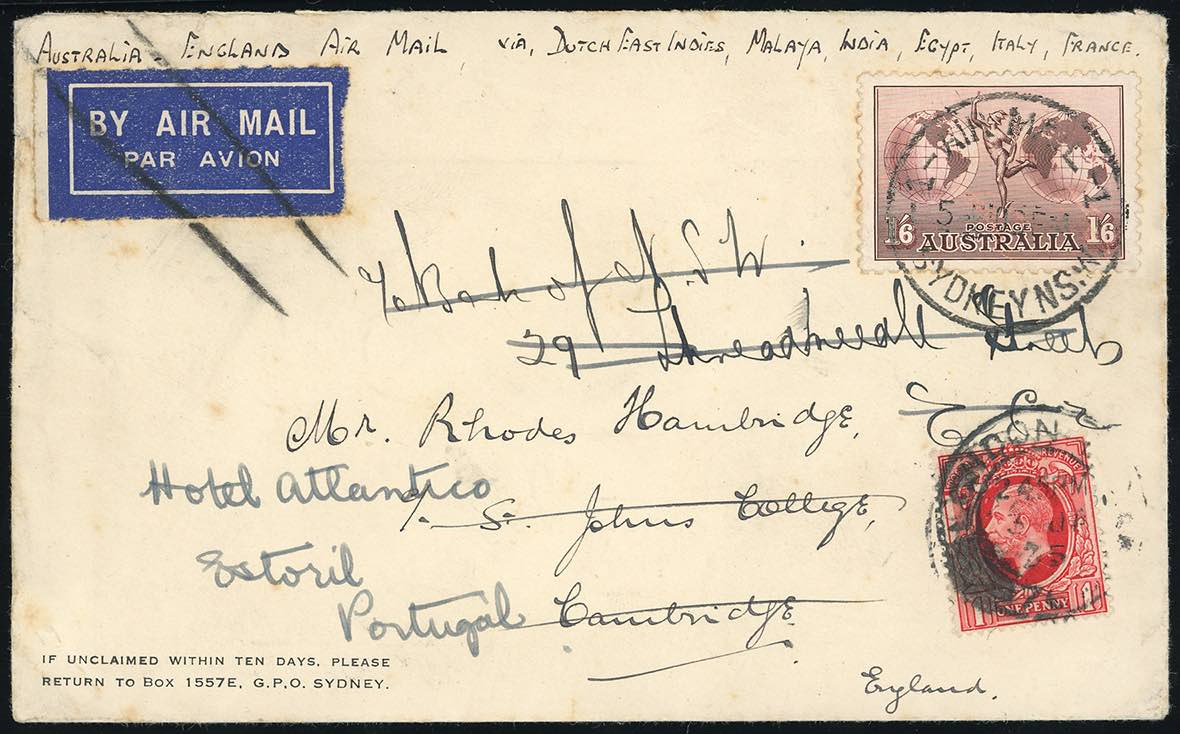 AUSTRALIA - ENGLAND AIR MAIL via, DUTCH EAST INDIES, MALAYA, INDIA, EGYPT, ITALY, FRANCE.
BY AIR MAIL
PAR AVION
POSTAGE
1/6 AUSTRALIA 1/6
AIR MAIL
SYDNEY N.S.W
c/o Bank of N.S.W.
29 Threadneedle Street
E.C.2
Mr. Rhodes Hambridge,
Hotel Atlantico
c/- St. Johns College,
Estoril
Portugal
Cambridge.
England.
LONDON
REVENUE
1 ONE PENNY 1
IF UNCLAIMED WITHIN TEN DAYS, PLEASE
RETURN TO BOX 1557E, G.P.O. SYDNEY.